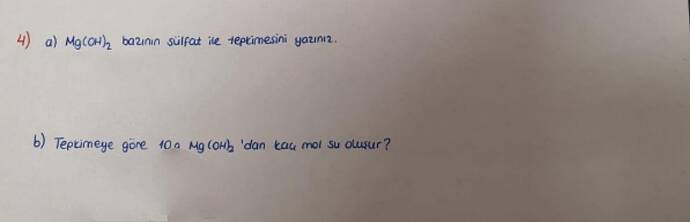 4) a) Mg(OH)₂ bazının sülfat ile tepkimesini yazınız.
b) Tepkimeye göre 10g Mg(OH)₂ 'dan kaç mol su oluşur?